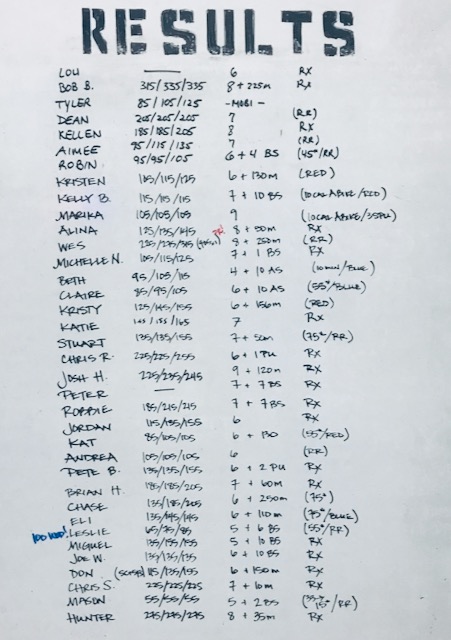 RESULTS
LOU — 6 RX
BOB B. 315/335/335 8 + 225m RX
TYLER 85/105/125 -MOBI-
DEAN 205/205/205 7 (RR)
KELLEN 185/185/205 8 RX
AIMEE 95/115/135 7 (RR)
ROBIN 95/95/105 6 + 4 BS (45#/RR)
KRISTEN 105/115/125 6 + 130m (RED)
KELLY B. 115/115/115 7 + 10 BS
MARIKA 105/105/105 9
ALINA 125/135/145 PR! 8 + 50m RX
WES 225/275/315 8 + 250m (RR)
MICHELLE N. 105/115/125 7 + 1 BS RX
BETH 95/105/115 4 + 10 AS
CLAIRE 85/95/105 6 + 10 AS (55#/BLUE)
KRISTY 125/145/155 6 + 156m (RED)
KATIE 7 RX
STUART 135/135/155 7 + 50m (75#/RR)
CHRIS R. 225/225/255 6 + 1 PU RX
JOSH H. 225/235/245 9 + 120m RX
PETER — 7 + 7 BS RX
ROBBIE 185/215/215 7 + 7 BS RX
JORDAN 115/135/155 6 RX
KAT 85/105/105 6 + 130 (55#/RED)
ANDREA 105/105/105 6 (RR)
PETE B. 135/135/155 6 + 2 PU RX
BRIAN H. 185/185/205 7 + 60m RX
CHASE 135/185/205 6 + 250m (75#)
ELI 135/145/145 6 + 110m (75#/BLUE)
100 WOD! LESLIE 65/75/85 5 + 6 BS (55#/RR)
MIGUEL 135/155/155 5 + 10 BS RX
JOE W. 135/135/135 6 + 10 BS RX
DON 115/135/155 6 + 150m RX
CHRIS S. 225/225/225 7 + 10m RX
MASON 55/55/55 5 + 2 BS
HUNTER 275/275/275 8 + 35m RX